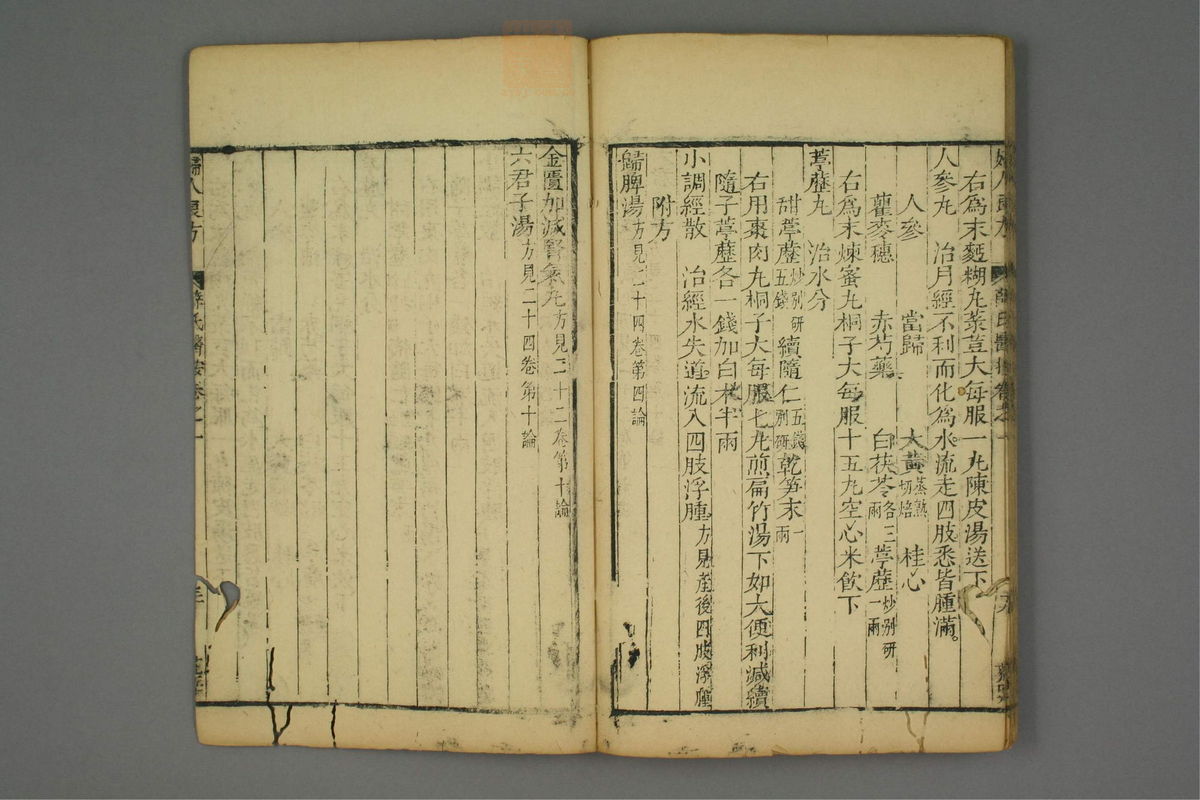 婦人良方
薛氏醫按卷之一
右為末麪糊丸菉荳大每服一丸陳皮湯送下
人參丸 治月經不利而化為水流走四肢悉皆腫滿。
人參 當歸 大黃蒸熟切焙 桂心
蘿麥穗 赤芍藥 白茯苓各二兩 葶藶炒別研一兩
右為末煉蜜丸桐子大每服十五丸空心米飲下
葶藶丸 治水分
甜葶藶炒別研五錢 續隨仁五錢別研 乾笋末一兩
右用棗肉丸桐子大每服七丸煎扁竹湯下如大便利減續
隨子葶藶各一錢加白朮半兩
小調經散 治經水失道流入四肢浮腫方見產後四肢浮腫
附方
歸脾湯方見二十四卷第四論
金匱加減腎氣丸方見二十二卷第十論
六君子湯方見二十四卷第十論
婦人良方
薛氏醫按卷之一